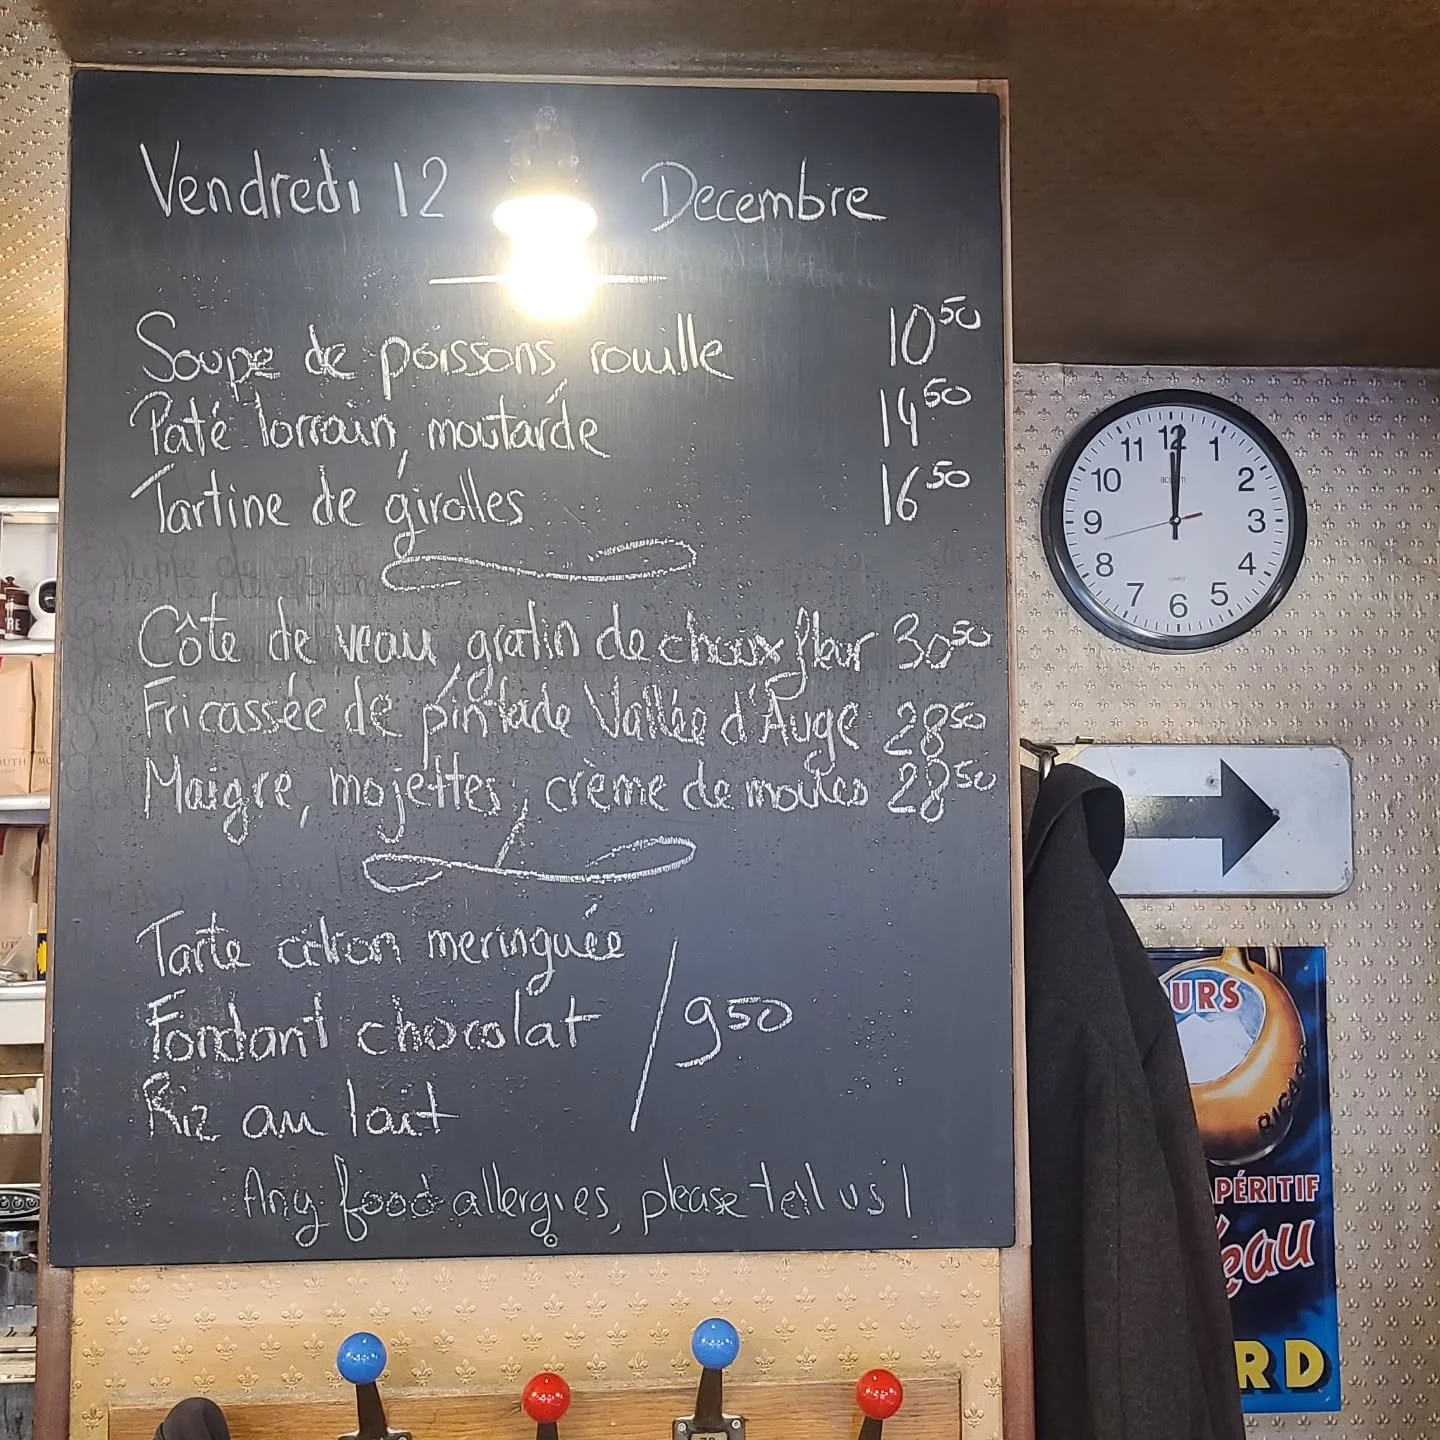 Vendredi 12 Decembre
Soupe de poissons, rouille 10 50
Paté lorrain, moutarde 14 50
Tartine de girolles 16 50
Côte de veau, gratin de chouxfleur 30 50
Fricassée de pintade Vallée d'Auge 28 50
Maigre, mojettes, crème de moules 28 50
Tarte citron meringuée
Fondant chocolat / 9 50
Riz au lait
Any food allergies, please tell us!
12
11 1
10 2
9 3
8 4
7 5
6
QUARTZ
URS
RICARD
PÉRITIF
éau
RD